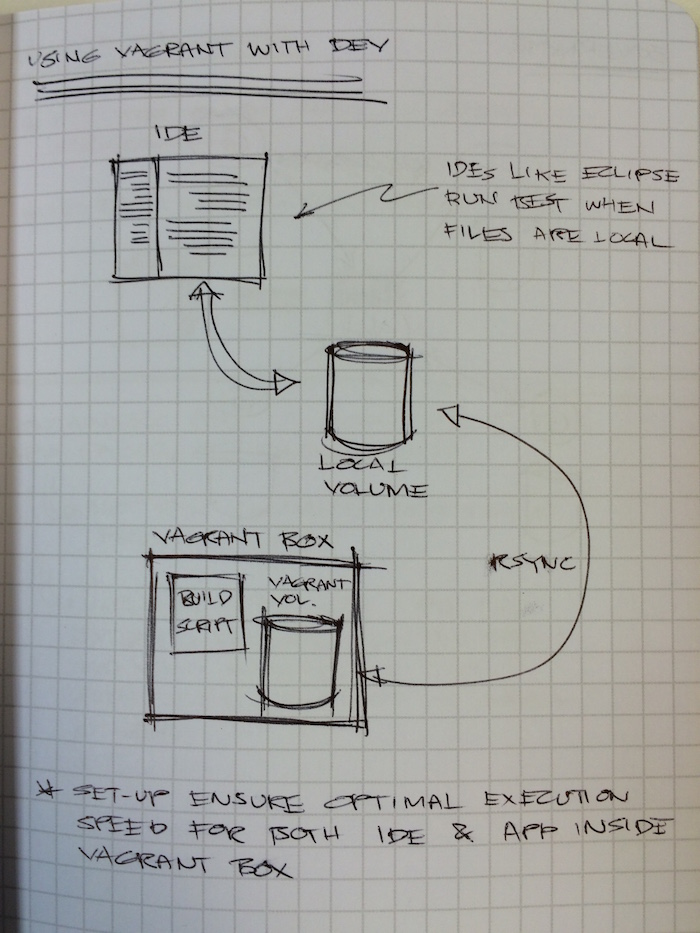 USING VAGRANT WITH DEV
IDE
IDEs LIKE ECLIPSE
RUN BEST WHEN
FILES ARE LOCAL
LOCAL
VOLUME
RSYNC
VAGRANT BOX
BUILD
SCRIPT
VAGRANT
VOL.
* SET-UP ENSURE OPTIMAL EXECUTION
SPEED FOR BOTH IDE & APP INSIDE
VAGRANT BOX